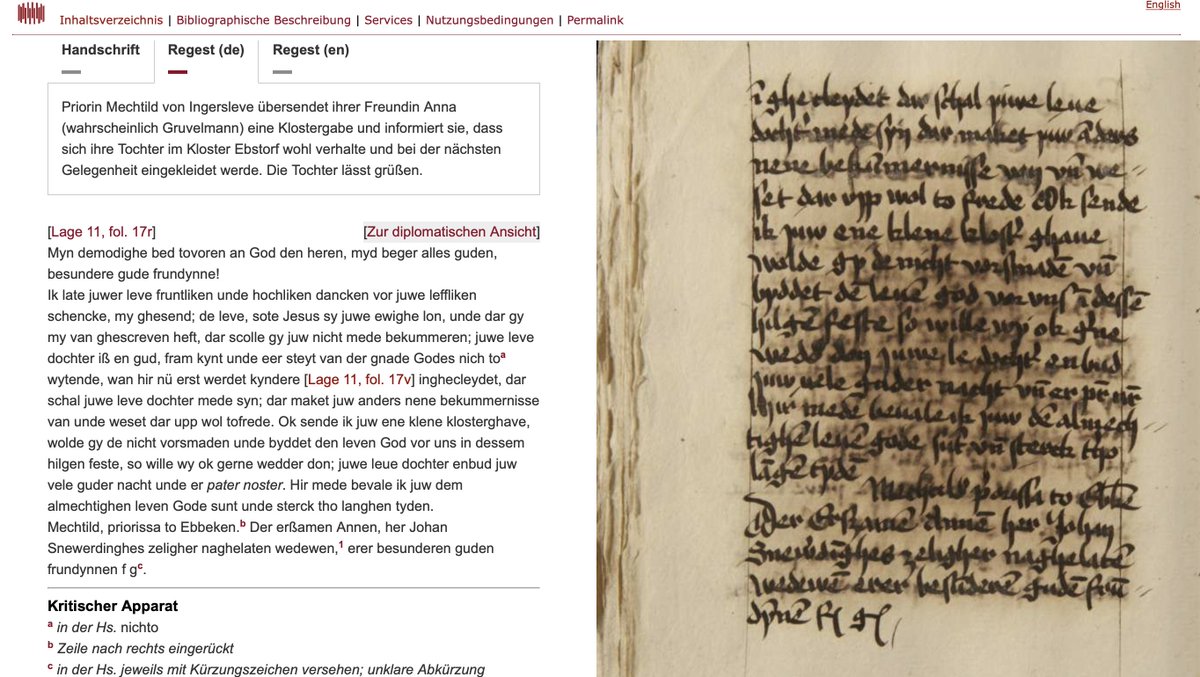 Inhaltsverzeichnis | Bibliographische Beschreibung | Services | Nutzungsbedingungen | Permalink
English
Handschrift Regest (de) Regest (en)
Priorin Mechtild von Ingersleve übersendet ihrer Freundin Anna
(wahrscheinlich Gruvelmann) eine Klostergabe und informiert sie, dass
sich ihre Tochter im Kloster Ebstorf wohl verhalte und bei der nächsten
Gelegenheit eingekleidet werde. Die Tochter lässt grüßen.
[Lage 11, fol. 17r] [Zur diplomatischen Ansicht]
Myn demodighe bed tovoren an God den heren, myd beger alles guden,
besundere gude frundynne!
Ik late juwer leve fruntliken unde hochliken dancken vor juwe leffliken
schencke, my ghesend; de leve, sote Jesus sy juwe ewighe lon, unde dar gy
my van ghescreven heft, dar scolle gy juw nicht mede bekummeren; juwe leve
dochter iß en gud, fram kynt unde eer steyt van der gnade Godes nich to a
wytende, wan hir nü erst werdet kyndere [Lage 11, fol. 17v] inghecleydet, dar
schal juwe leve dochter mede syn; dar maket juw anders nene bekummernisse
van unde weset dar upp wol tofrede. Ok sende ik juw ene klene klosterghave,
wolde gy de nicht vorsmaden unde byddet den leven God vor uns in dessem
hilgen feste, so wille wy ok gerne wedder don; juwe leue dochter enbud juw
vele guder nacht unde er pater noster. Hir mede bevale ik juw dem
almechtighen leven Gode sunt unde sterck tho langhen tyden.
Mechtild, priorissa to Ebbeken.b Der erßamen Annen, her Johan
Snewerdinghes zeligher naghelaten wedewen,1 erer besunderen guden
frundynnen f gc.
Kritischer Apparat
a in der Hs. nichto
b Zeile nach rechts eingerückt
c in der Hs. jeweils mit Kürzungszeichen versehen; unklare Abkürzung
īghecleydet dar schal yuwe leue
docht' mede syn dar maket yuw āders
nene bekūmernisse van vn̄ we-
set dar vpp wol to frede Ok sende
ik yuw ene klene klost' ghaue
wolde gy de nicht vorsmadē vn̄
byddet dē leuē god vor vns ī dessē
hilgē feste so wille wy ok g'ne
wedd' don yuwe le docht' enbud
yuw uele guder nacht vn̄ er pr̄ nr̄
Hir mede beuale ik yuw dē almech
tighē leuē gode sūt vn̄ sterck tho
lāgē tydē
Mechtild to
Der Erszamē Annē her Johan
zeligher naghelatē
wedewē erer besūderē gudē frū
dynē f g